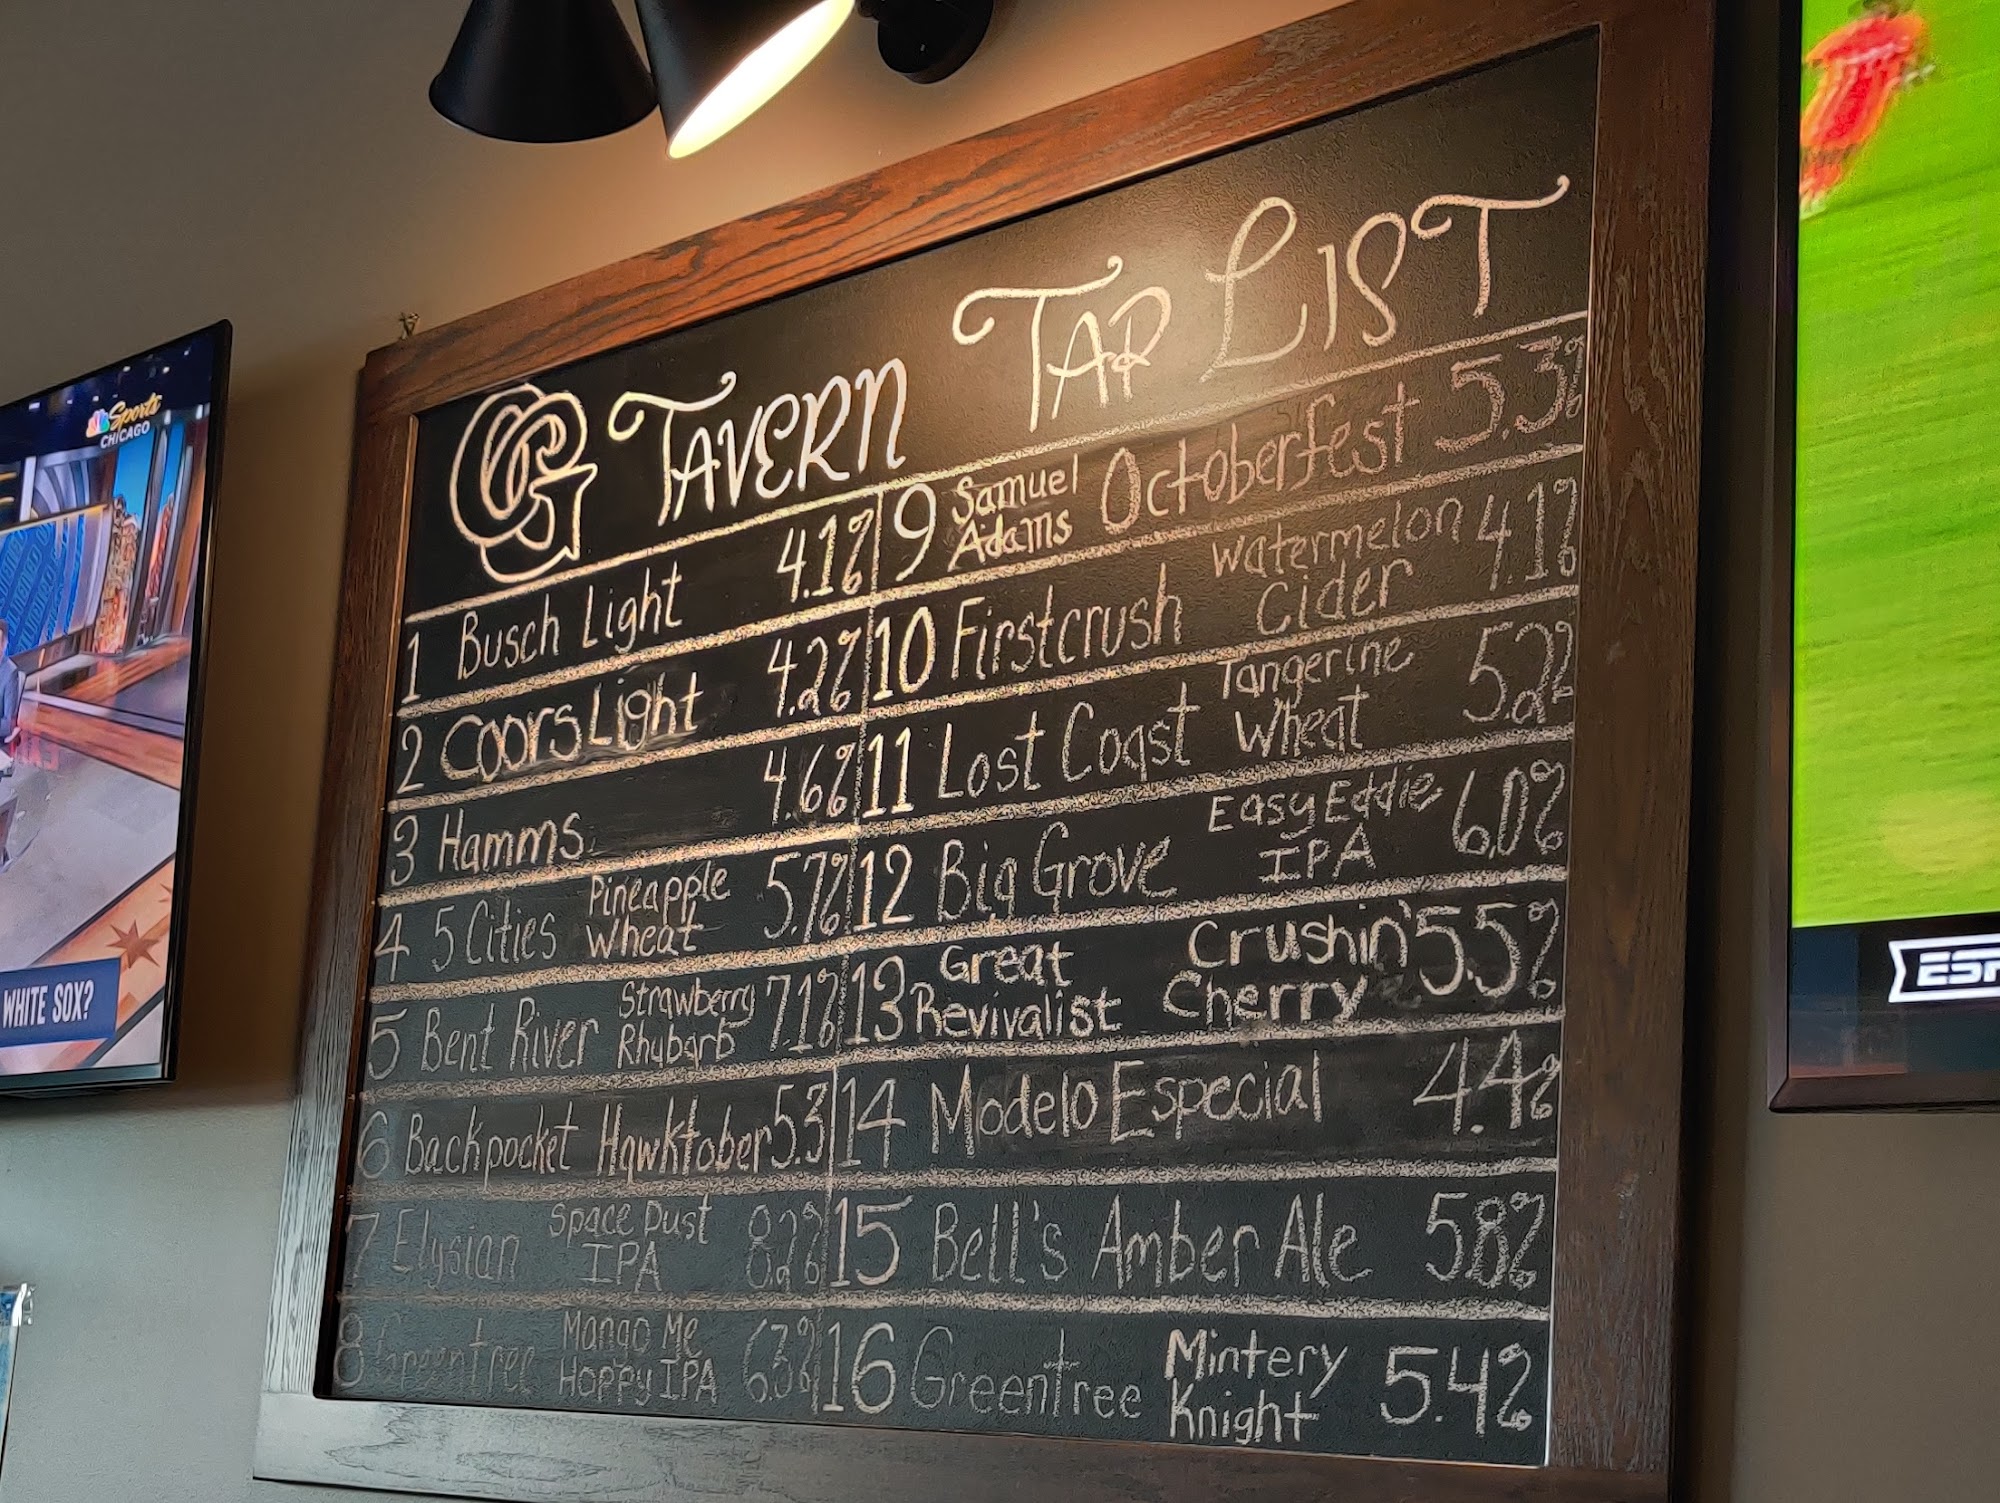 NBC Sports
CHICAGO
WHITE SOX?
G TAVERN TAP LIST
1 Busch Light 4.1%
2 Coors Light 4.2%
3 Hamms 4.6%
4 5 Cities Pineapple Wheat 5.7%
5 Bent River Strawberry Rhubarb 7.1%
6 Backpocket Hawktober 5.3
7 Elysian Space Dust IPA 8.2%
8 Greentree Mango Me Hoppy IPA 6.3%
9 Samuel Adams Octoberfest 5.3%
10 Firstcrush Watermelon Cider 4.1%
11 Lost Coast Tangerine Wheat 5.2%
12 Big Grove Easy Eddie IPA 6.0%
13 Great Revivalist Crushin' Cherry 5.5%
14 Modelo Especial 4.4%
15 Bell's Amber Ale 5.8%
16 Greentree Mintery Knight 5.4%